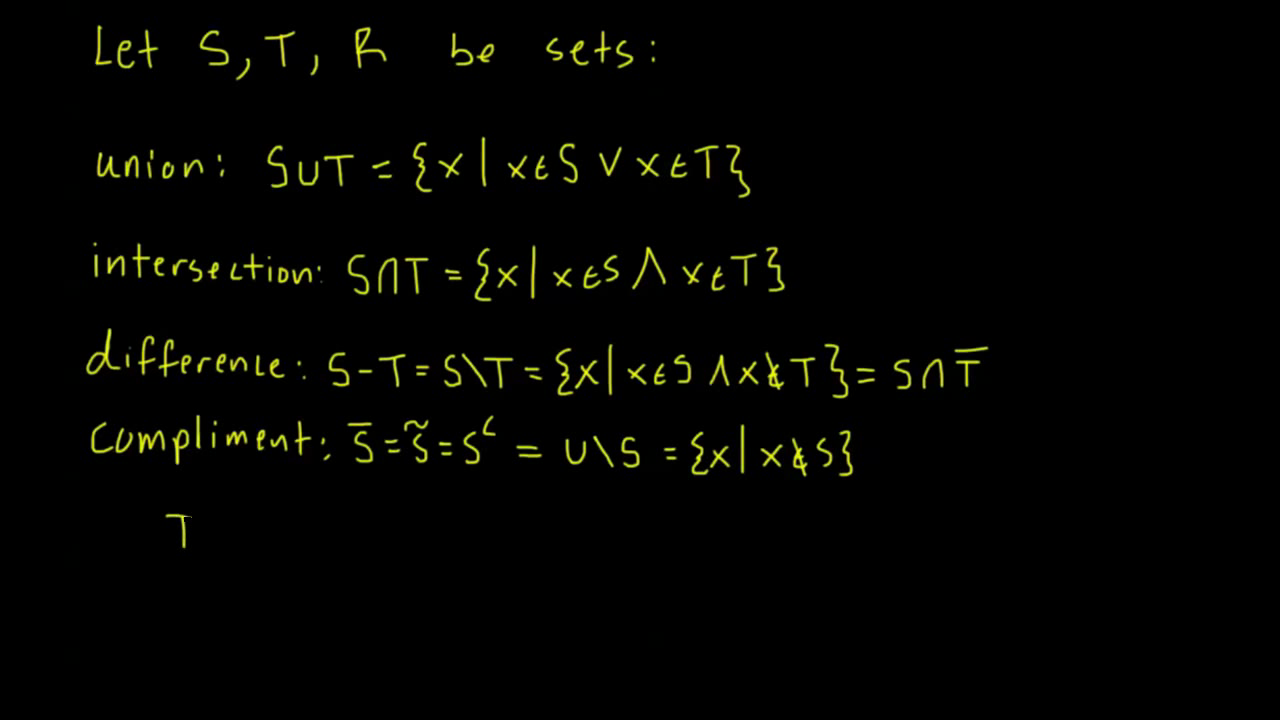 Let S, T, R be sets:
union: S∪T = {x | x∈S ∨ x∈T}
intersection: S∩T = {x | x∈S ∧ x∈T}
difference: S-T = S\T = {x | x∈S ∧ x∉T} = S∩T̅
compliment: S̅ = S̃ = Sᶜ = U\S = {x | x∉S}
T